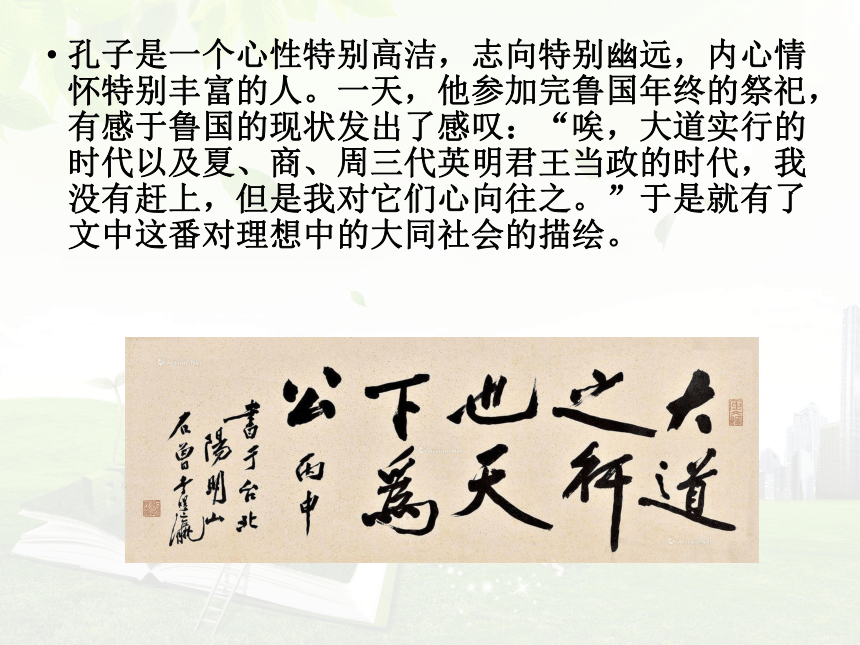 • 孔子是一个心性特别高洁，志向特别幽远，内心情
怀特别丰富的人。一天，他参加完鲁国年终的祭祀，
有感于鲁国的现状发出了感叹：“唉，大道实行的
时代以及夏、商、周三代英明君王当政的时代，我
没有赶上，但是我对它们心向往之。”于是就有了
文中这番对理想中的大同社会的描绘。
大道
之行
也天
下為
公 丙申
書于台北
陽明山